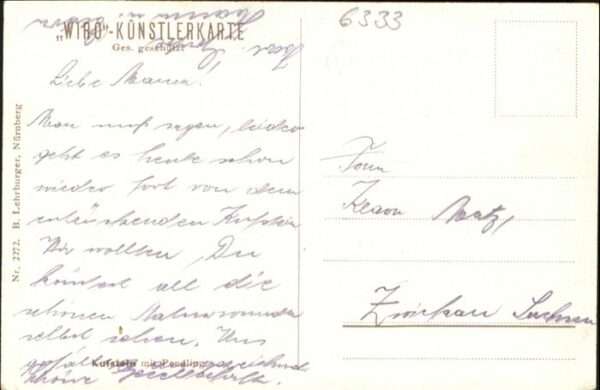 6333
„WIRO"-KÜNSTLERKARTE
Ges. geschützt
Liebe Mama!
Man muß sagen, leider
geht es heute schon
wieder fort von dem
entzückenden Kufstein
Wir wollten, Du
könntest all die
schönen Naturwunder
selbst sehen. Uns
Kufstein mit Pendling
schöne Gesellschaft.
Nr. 2272. B. Lehrburger, Nürnberg
Frau
Matz,
Zwickau Sachsen